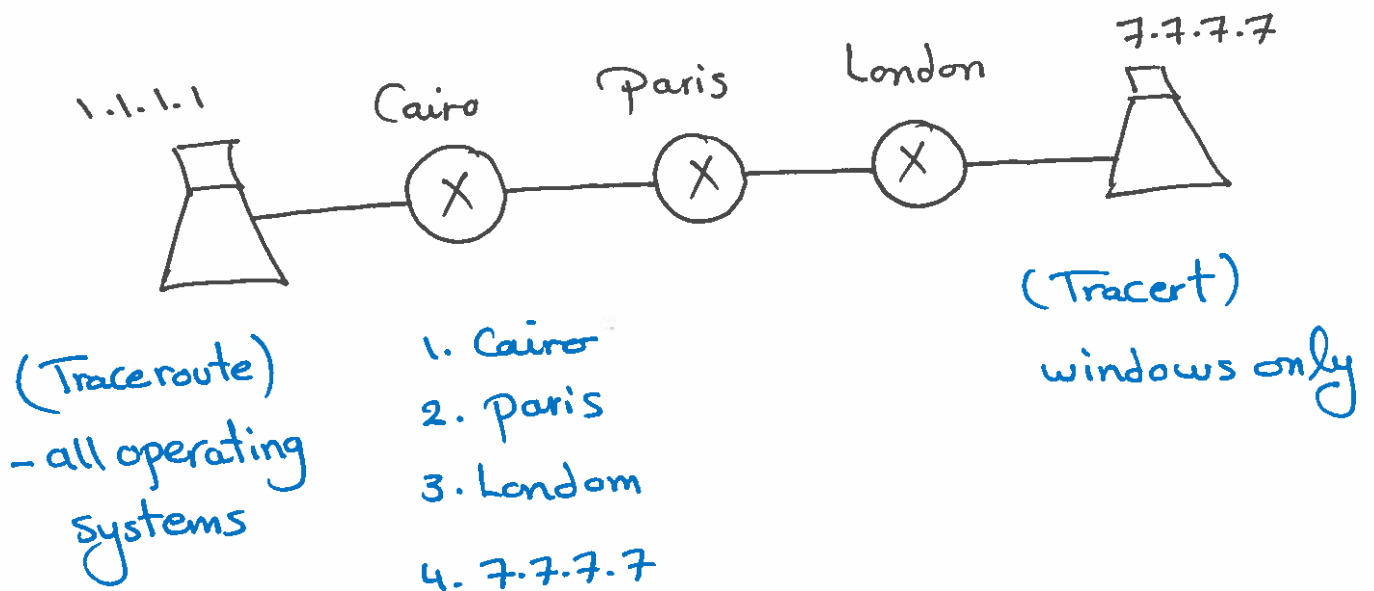 1.1.1.1
Cairo
Paris
London
7.7.7.7
X
X
X
(Traceroute)
- all operating
systems
1. Cairo
2. Paris
3. Londom
4. 7.7.7.7
(Tracert)
windows only